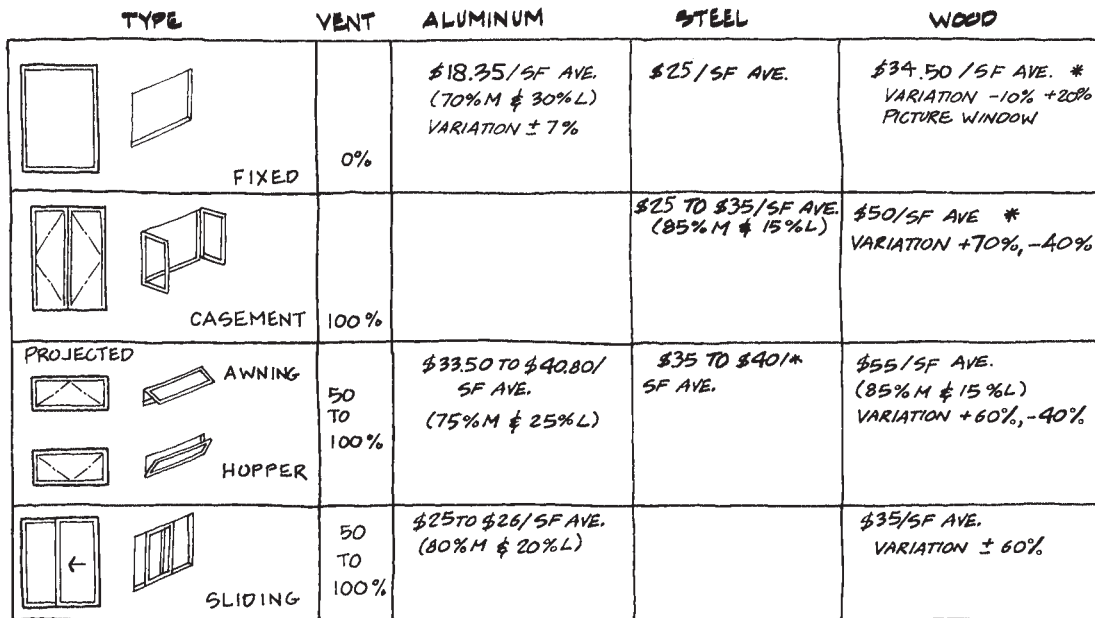 TYPE VENT ALUMINUM STEEL WOOD
FIXED
0%
$18.35/SF AVE.
(70%M & 30%L)
VARIATION ± 7%
$25/SF AVE.
$34.50/SF AVE. *
VARIATION -10% +20%
PICTURE WINDOW
CASEMENT
100%
$25 TO $35/SF AVE.
(85%M & 15%L)
$50/SF AVE *
VARIATION +70%, -40%
PROJECTED
AWNING
HOPPER
50
TO
100%
$33.50 TO $40.80/
SF AVE.
(75%M & 25%L)
$35 TO $40/*
SF AVE.
$55/SF AVE.
(85%M & 15%L)
VARIATION +60%, -40%
SLIDING
50
TO
100%
$25 TO $26/SF AVE.
(80%M & 20%L)
$35/SF AVE.
VARIATION ± 60%